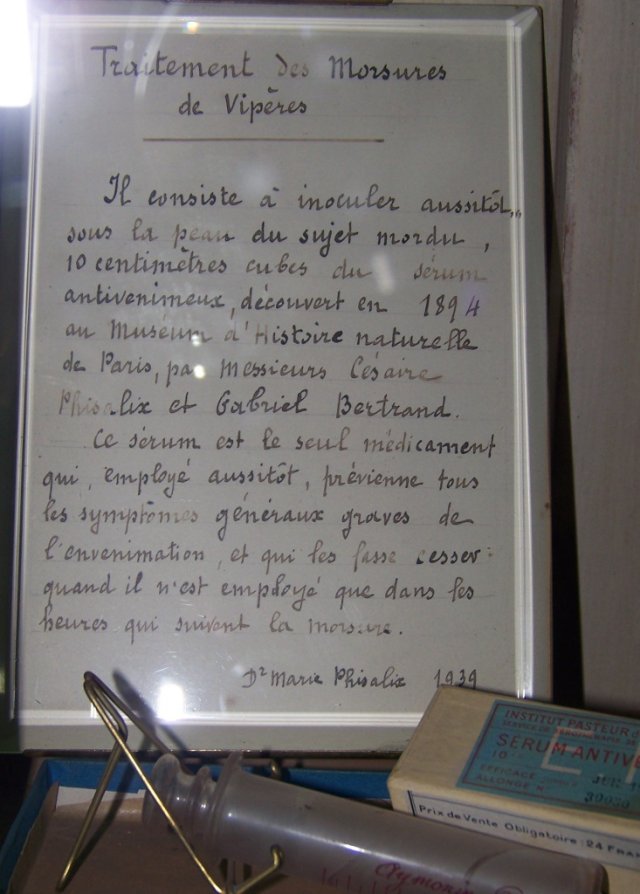 Traitement des Morsures
de Vipères
Il consiste à inoculer aussitôt,
sous la peau du sujet mordu,
10 centimètres cubes du sérum
antivenimeux, découvert en 1894
au Muséum d'Histoire naturelle
de Paris, par Messieurs Césaire
Phisalix et Gabriel Bertrand.
Ce sérum est le seul médicament
qui, employé aussitôt, prévienne tous
les symptômes généraux graves de
l'envenimation, et qui les fasse cesser
quand il n'est employé que dans les
heures qui suivent la morsure.
Dr Marie Phisalix 1939
INSTITUT PASTEUR
SERUM ANTIVE
10
EFFICACE
ALLONGE N°
Prix de Vente Obligatoire : 24 Fran